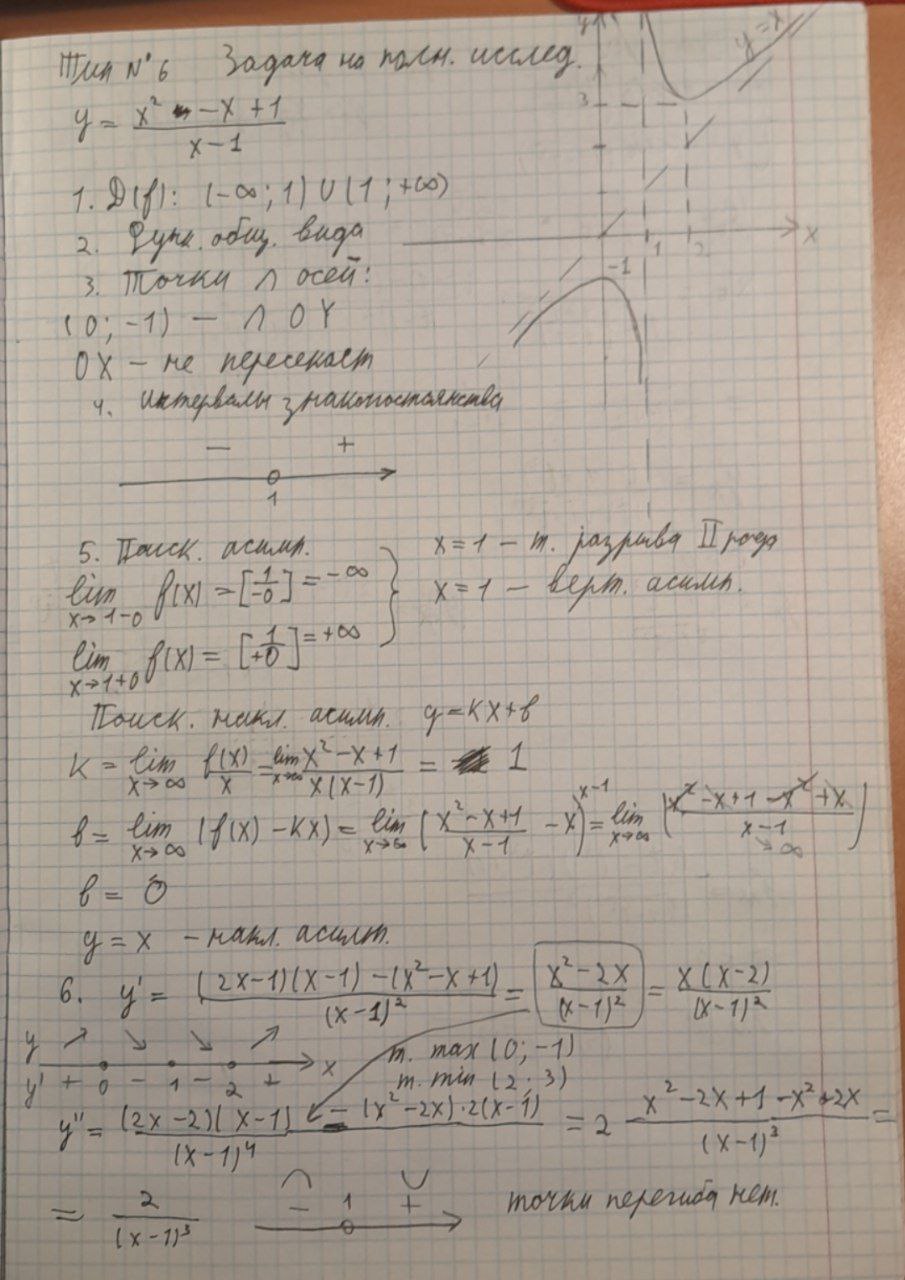 Тип №6 Задача на полн. исслед.
y = (x² - x + 1)/(x - 1)
1. D(f): (-∞; 1) ∪ (1; +∞)
2. Функ. общ. вида
3. Точки ∩ осей:
(0; -1) — ∩ OY
OX — не пересекает
4. Интервалы знакопостоянства
— +
1
y
y=x
3
x
1
2
-1
5. Поиск. асимп.
lim x→1-0 f(x) = [1/-0] = -∞
lim x→1+0 f(x) = [1/+0] = +∞
x = 1 — т. разрыва II рода
x = 1 — верт. асимп.
Поиск. накл. асимп. y = kx + b
k = lim x→∞ f(x)/x = lim x→∞ (x² - x + 1)/(x(x-1)) = 1
b = lim x→∞ (f(x) - kx) = lim x→∞ ((x² - x + 1)/(x-1) - x)^{x-1} = lim x→∞ ((x² - x + 1 - x² + x)/(x-1)) → ∞
b = 0
y = x - накл. асимт.
6. y' = ((2x-1)(x-1) - (x² - x + 1))/(x-1)² = (x² - 2x)/(x-1)² = x(x-2)/(x-1)²
y ↗ ↘ ↘ ↗ x
y' + 0 - 1 - 2 +
т. max (0; -1)
т. min (2; 3)
y'' = ((2x-2)(x-1) - (x² - 2x)·2(x-1))/(x-1)⁴ = 2 (x² - 2x + 1 - x² + 2x)/(x-1)³ =
= 2/(x-1)³ - 1 + точки перегиба нет.